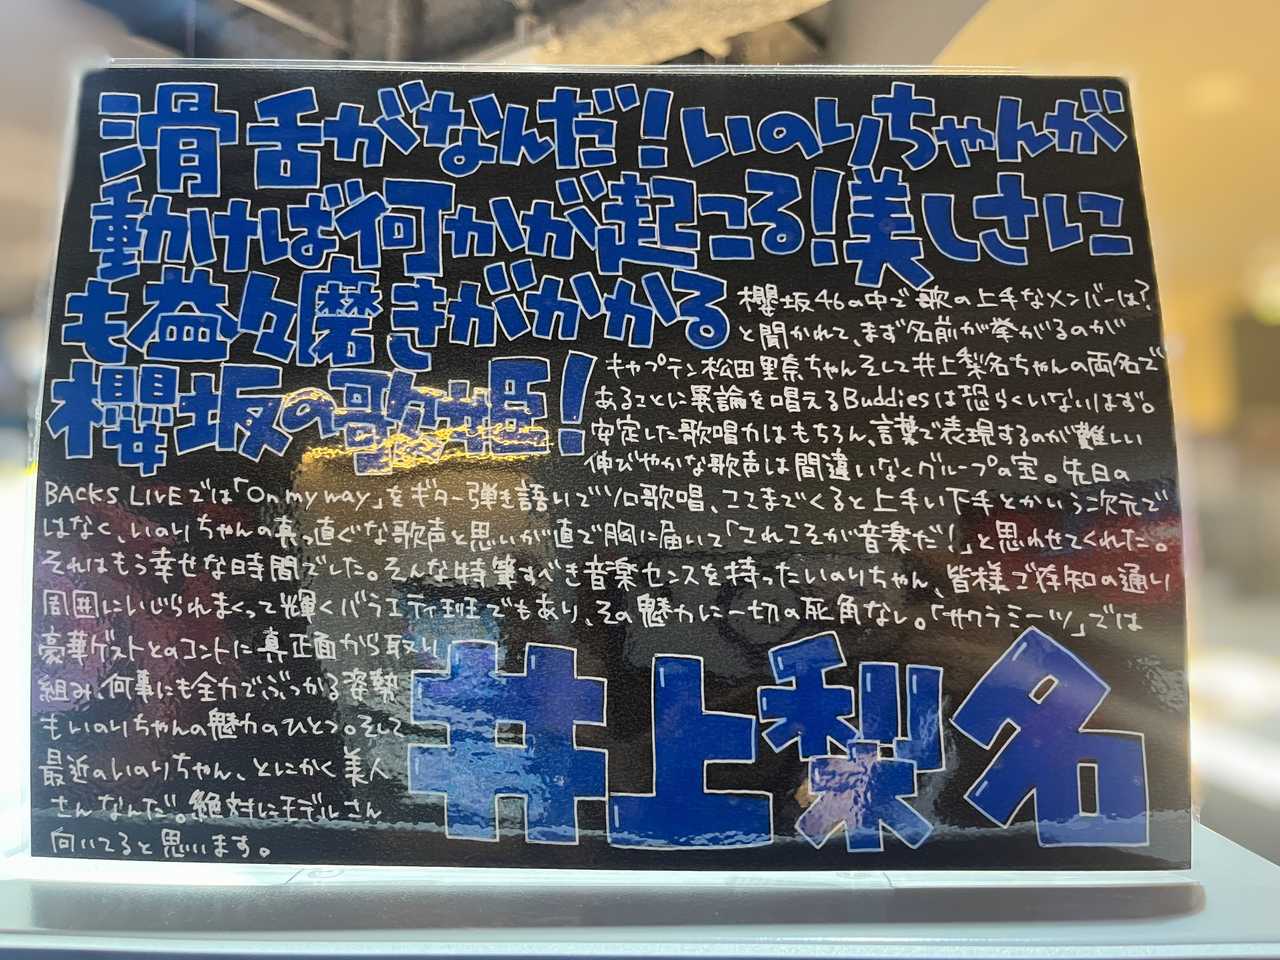 滑舌がなんだ!いのりちゃんが
動けば何かが起こる!美しさに
も益々磨きがかかる
櫻坂の歌姫!
櫻坂46の中で歌の上手なメンバーは?
と聞かれて、まず名前が挙がるのが
キャプテン松田里奈ちゃんそして井上梨名ちゃんの両名で
あることに異論を唱えるBuddiesは恐らくいないはず。
安定した歌唱力はもちろん、言葉で表現するのが難しい
伸びやかな歌声は間違いなくグループの宝。先日の
BACKS LIVEでは「On my way」をギター弾き語いでソロ歌唱、ここまでくると上手い下手とかいう二次元で
はなく、いのりちゃんの真っ直ぐな歌声と思いが直で胸に届いて「これこそが音楽だ!」と思わせてくれた。
それはもう幸せな時間でした。そんな特筆すべき音楽センスを持ったいのりちゃん、皆様ご存知の通り
周囲にいじられまくって輝くバラエティ班でもあり、その魅力に一切の死角なし。「サクラミーツ」では
豪華ゲストとのコントに真正面から取り
組み、何事にも全力でぶつかる姿勢
もいのりちゃんの魅力のひとつ。そして
最近のいのりちゃん、とにかく美人
さんなんだ。絶対にモデルさん
向いてると思います。
井上梨名